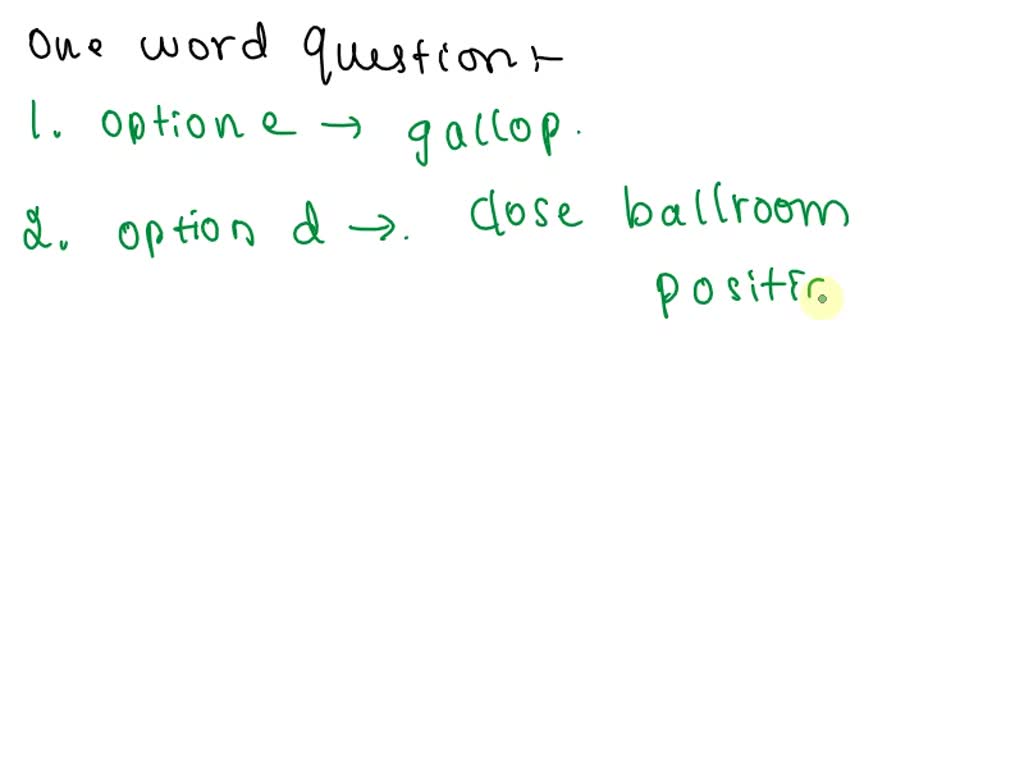 One word question :-
1. option e → gallop.
2. option d →. close ballroom